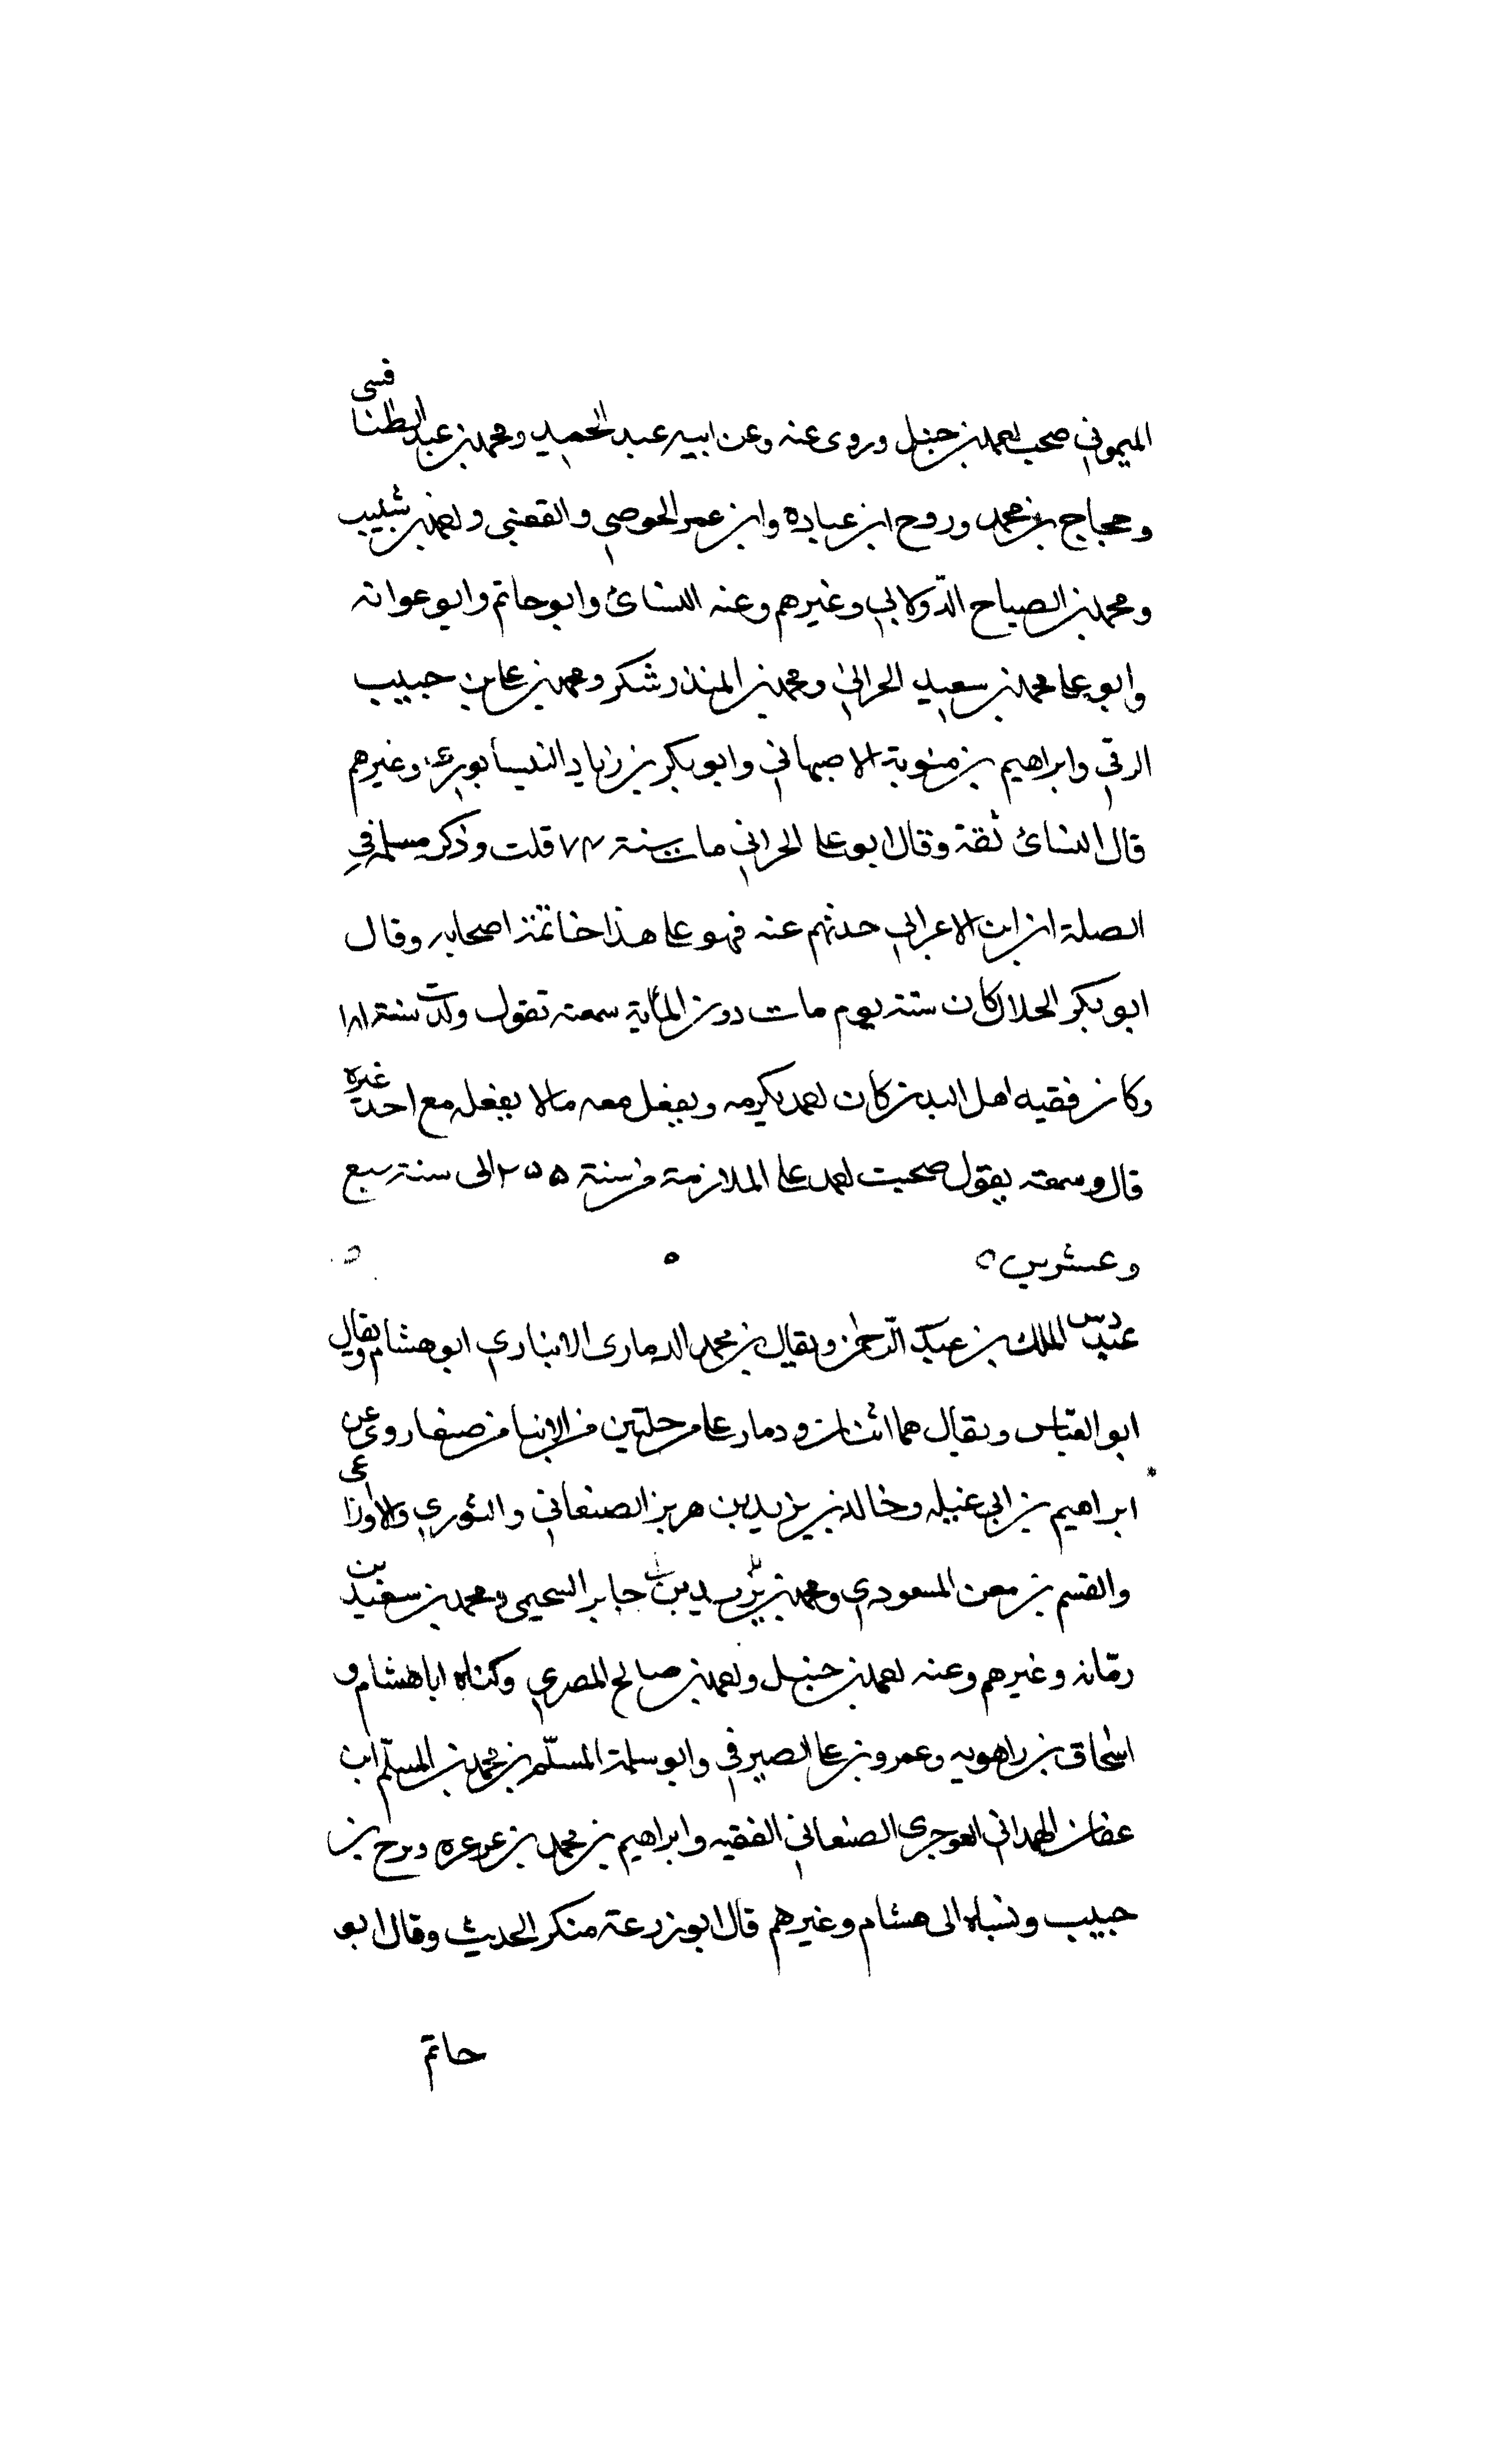 الميموني صحب احمد بن حنبل وروى عنه وعن ابيه عبد الحميد ومحمد بن عبيد الطنافسى
وحجاج بن محمد وروح ابن عباده وابن عمر الحوضي والقعنبى واحمد بن شبيب
ومحمد بن الصباح الدّولابي وغيرهم وعنه النسائ وابو حاتم وابو عوانه
وابو على محمد بن سعيد الحراني ومحمد بن المنذر شكر ومحمد بن على بن حبيب
الرقي وابراهيم بن متوية الاصبهاني وابو بكر بن زياد النيسابوري وغيرهم
قال النسائ ثقة وقال ابو على الحراني مات سنة ٧٤ قلت وذكر مسلمه في
الصلة ان ابن الاعرابي حدثهم عنه فهو على هذا خاتمة اصحابه وقال
ابو بكر الخلال كان سنه يوم مات دون الماية سمعته يقول ولدت سنة ١٨١
وكان فقيه اهل البدن كان احمد يكرمه ويفعل معه مالا يفعله مع احد غيره
قال وسمعته يقول صحبت احمد على الملازمة من سنة ٢٥٥ الى سنة سبع
وعشرين
د س عبد الملك بن عبد الرّحمن ويقال بن محمد الدمارى الانباري ابو هشام ويقال
ابو العبّاس ويقال هما اثنان ودمار على مرحلتين من الابنا من صنعا روى عن
ابراهيم بن ابى عبيله وخالد بن يزيد بن هربز الصنعاني والثوري والاوزاعى
والقسم بن معن المسعودي ومحمد بن جابر السحيمى ومحمد بن سعيد بن
رمّانه وغيرهم وعنه احمد بن حنبل واحمد بن صالح المصري وكناه ابا هشام و
اسحاق بن راهويه وعمرو بن على الصيرفي وابو سلمة المسلّم بن محمد بن المسلّم ابن
عفان الهمداني الصنعاني الفقيه وابراهيم بن محمد بن عرعره ونوح بن
حبيب ونسباه الى هشام وغيرهم قال ابو زرعة منكر الحديث وقال ابو
حاتم